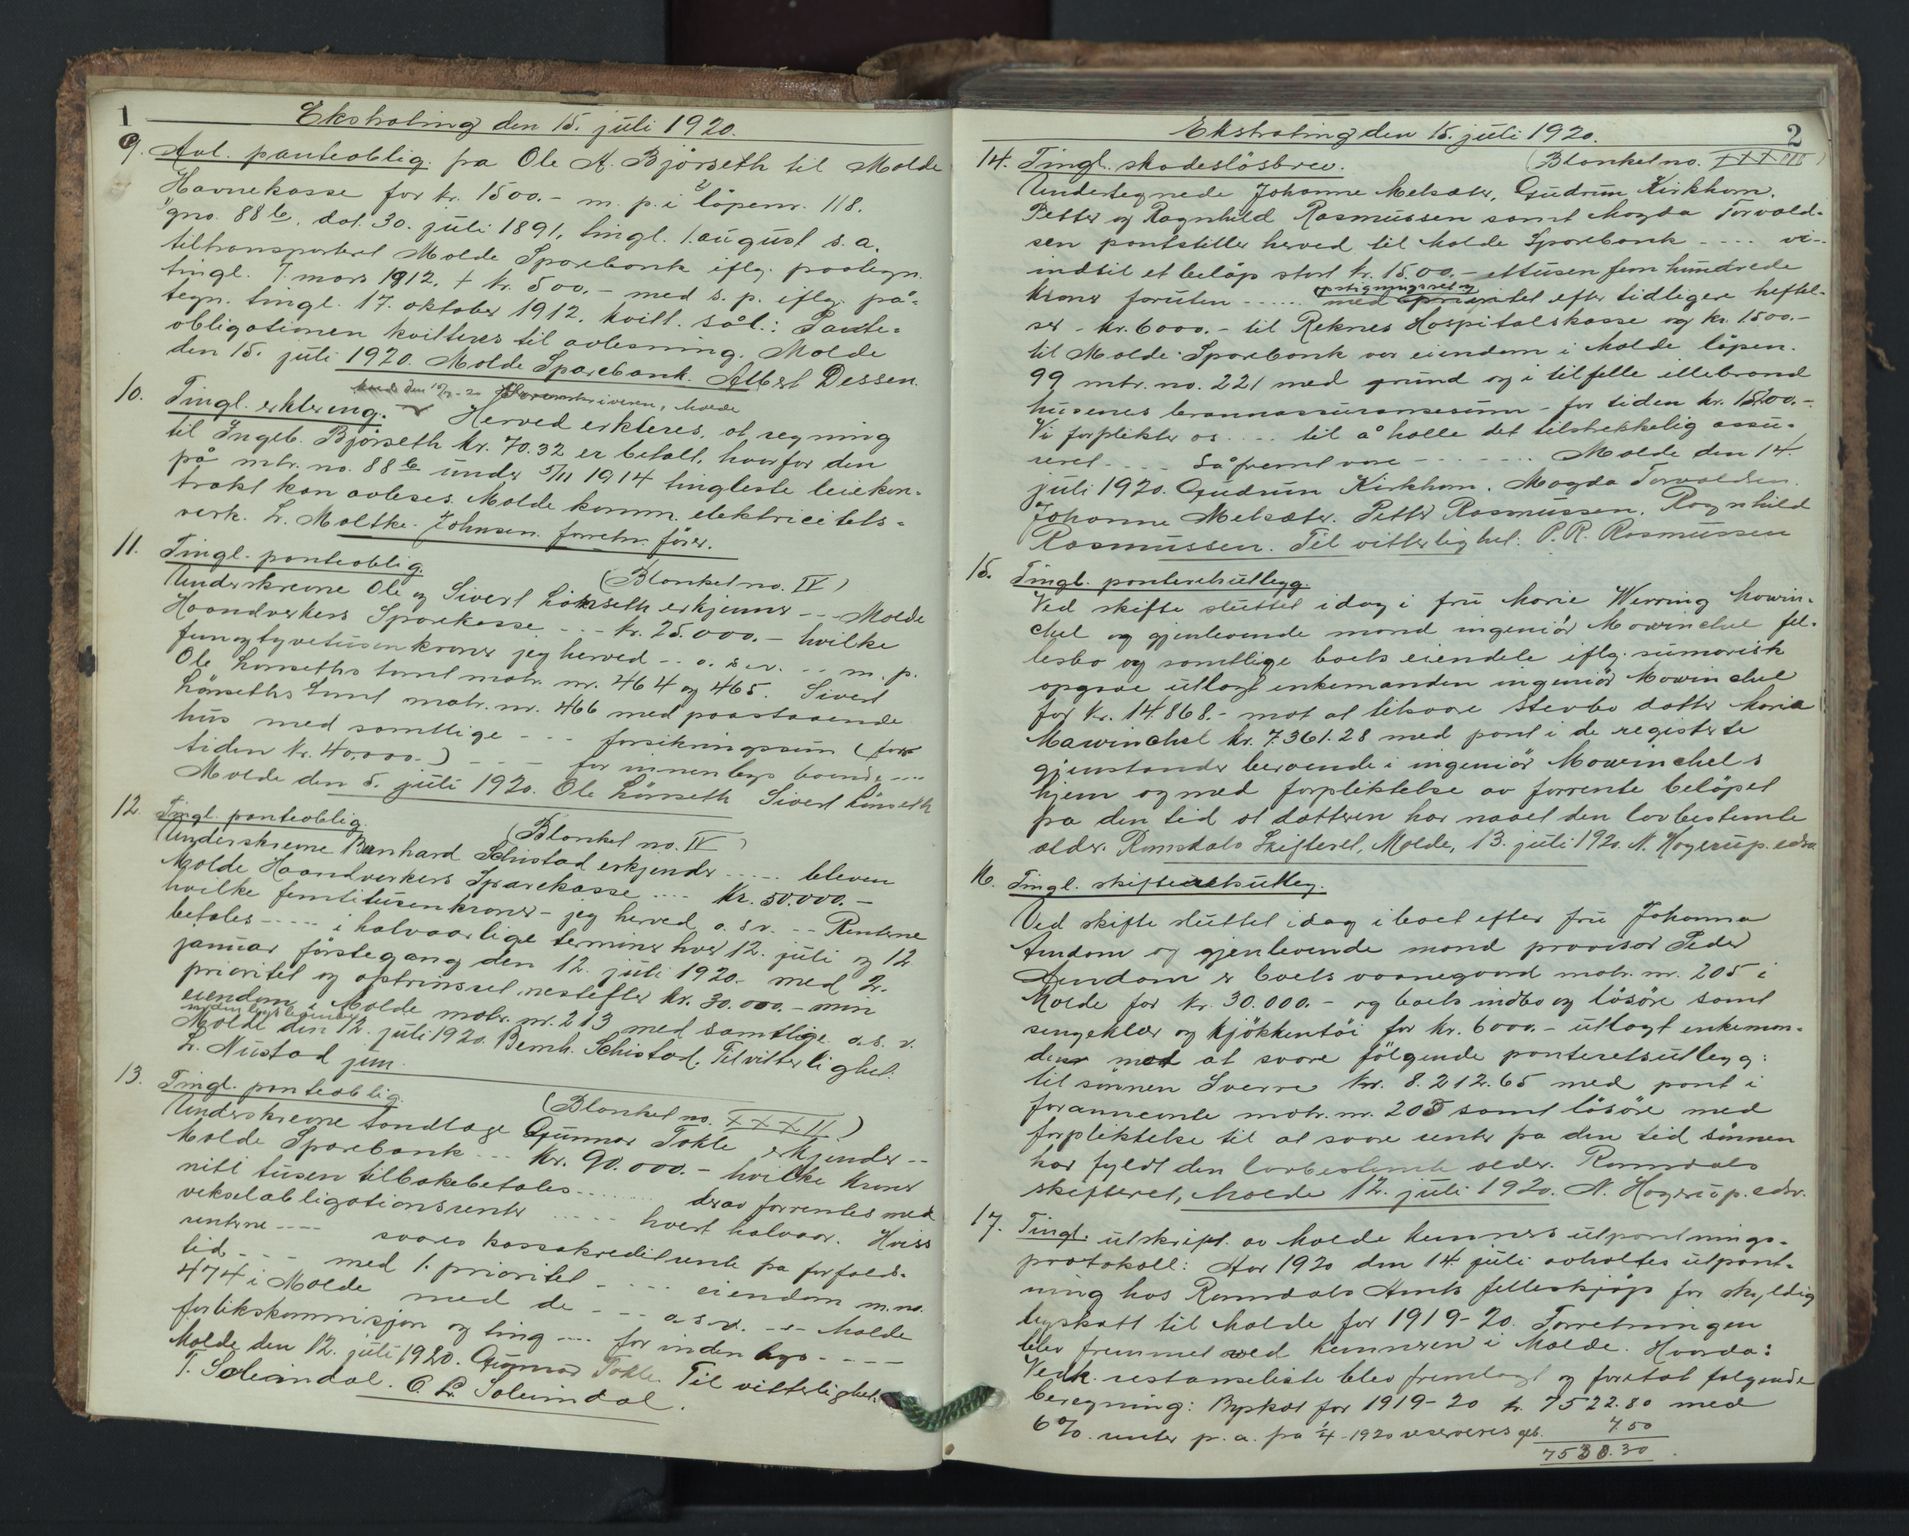 1
Ekstrating den 15. juli 1920.
9. Avl. panteoblig. fra Ole A. Bjørseth til Molde
Havnekasse for kr. 1500.- m. p. i løpenr. 118.
gno. 88b, dat. 30. juli 1891, tingl. 1. august s. a.
tiltransportert Molde Sparebank iflg. paategn.
tingl. 7. mars 1912. + kr. 500.- med s. p. iflg. på-
tegn. tingl. 17. oktober 1912. kvitt. sål.: Pante-
obligationen kvitteres til avlesning. Molde
den 15. juli 1920. Molde Sparebank. Albert Dessen.
10. Tingl. erklering. Sorenskriveren, Molde
Herved erkleres, at regning
til Ingeb. Bjørseth kr. 70.32 er betalt, hvorfor den
på mtr. no. 88b under 5/11 1914 tingleste leiekon-
trakt kan avleses. Molde komm. elektricitets-
verk. L. Moltke-Johnsen. forretn. fører.
11. Tingl. panteoblig.
(Blanket no. IV)
Underskrevne Ole og Sivert Lønseth erkjenner -- Molde
Haandverkers Sparekasse --- kr. 25.000.- hvilke
femogtyvetusen kroner jeg herved -- o. s. v. -- m. p.
Ole Lønseths tomt matr. nr. 464 og 465. Sivert
Lønseths tomt matr. nr. 466 med paastaaende
hus med samtlige --- forsikringssum (for
tiden kr. 40.000.-) --- for innenbys boende ---
Molde den 5. juli 1920. Ole Lønseth Sivert Lønseth
12. Tingl. panteoblig.
(Blanket no. IV)
Underskrevne Bernhard Schistad erkjender ----- bleven
Molde Haandverkers Sparekasse ---- kr. 50.000.-
hvilke femtitusen kroner - jeg herved o. s. v. -- Renterne
betales ---- i halvaarlige terminer hver 12. juli og 12.
januar førstegang den 12. juli 1920. med 2.
prioritet og optrinsret nestefter kr. 30.000.- min
eiendom i Molde matr. nr. 213 med samtlige o. s. v.
Molde den 12. juli 1920. Bernh. Schistad. Til vitterlighet.
L. Nustad jun.
13. Tingl. panteoblig.
(Blanket no. XXXII.)
Underskrevne tandlæge Gunnar Tokle erkjender --
Molde Sparebank --- kr. 90.000.- hvilke kroner
nitti tusen tilbakebetales ------ derav forrentes med
vekselobligationsrenter ----- hvert halvaar. Hviss
renterne ---- svares kassakreditrente fra forfalds-
tid --- med 1. prioritet ---- eiendom m. no.
474 i Molde med de --- o. s. v. -- Molde
forlikskommisjon og ting ---- for innenbys ----
Molde den 12. juli 1920. Gunnar Tokle. Til vitterlighet.
T. Solemdal. O. L. Solemdal.
2
Ekstrating den 15. juli 1920.
14. Tingl. skadesløsbrev.
(Blanket no. XXXIII)
Undertegnede Johanne Melsæter, Gudrun Kirkhorn,
Petter og Ragnhild Rasmussen samt Magda Torvald-
sen pantstiller herved til Molde Sparebank ---- vi--
indtil et beløp stort kr. 1500.- ettusen fem hundrede
kroner foruten ----- opstigningsret og
med prioritet efter tidligere heftel-
ser - kr. 6000.- til Reknes Hospitalskasse og kr. 1500.-
til Molde Sparebank vor eiendom i Molde løpen.
99 mtr. no. 221 med grund og i tilfelle ildebrand
husenes brannassuransesum - for tiden kr. 15200.-.
Vi forplikter os ---- til å holle det tilstrekkelig assu-
rert ---- Såfremt vore ------- Molde den 14.
juli 1920. Gudrun Kirkhorn. Magda Torvaldsen.
Johanne Melsæter. Petter Rasmussen. Ragnhild
Rasmussen. Til vitterlighet: P. R. Rasmussen
15. Tingl. panteretsutlegg.
Ved skifte sluttet idag i fru Marie Werring Mowin-
chel og gjenlevende mand ingeniør Mowinchel fel-
lesbo og samtlige boets eiendele iflg. sumarisk
opgave utlagt enkemanden ingeniør Mowinchel
for kr. 14.868.- mot at tilsvare stervbo datter Maria
Mawinchel kr. 7.361.28 med pant i de registrerte
gjenstander beroende i ingeniør Mowinchels
hjem og med forpliktelse av forrente beløpet
fra den tid at datteren har naaet den lovbestemte
alder. Romsdals Skifteret, Molde, 13. juli 1920. N. Hagerup. edsv.
16. Tingl. skifteretsutleg.
Ved skifte sluttet idag i boet efter fru Johanna
Amdam og gjenlevende mand provisor Peder
Amdam er boets vaanegaard matr. nr. 205 i
Molde for kr. 30.000.- og boets indbo og løsøre samt
sengeklær og kjøkkentøi for kr. 6000.- utlagt enkeman-
den mot at svare følgende panteretsutlegg:
til sønnen Sverre kr. 8.212.65 med pant i
forannevnte matr. nr. 205 samt løsøre med
forpliktelse til at svare renter fra den tid sønnen
har fyldt den lovbestemte alder. Romsdals
skifteret, Molde 12. juli 1920. N. Hagerup. edsv.
17. Tingl. utskript av Molde kemners utpantnings-
protokoll: Aar 1920 den 14. juli avholtes utpant-
ning hos Romsdals Amts felleskjøp for skyldig
byskatt til Molde for 1919-20. Forretningen
blev fremmet ved kemneren i Molde. Hvorda:
Vedk. restanseliste blev fremlagt og foretat følgende
beregning: Byskat for 1919-20 kr. 7522.80 med
6% renter p. a. fra 1/4-1920 reserveres geb. 7.50
7530.30